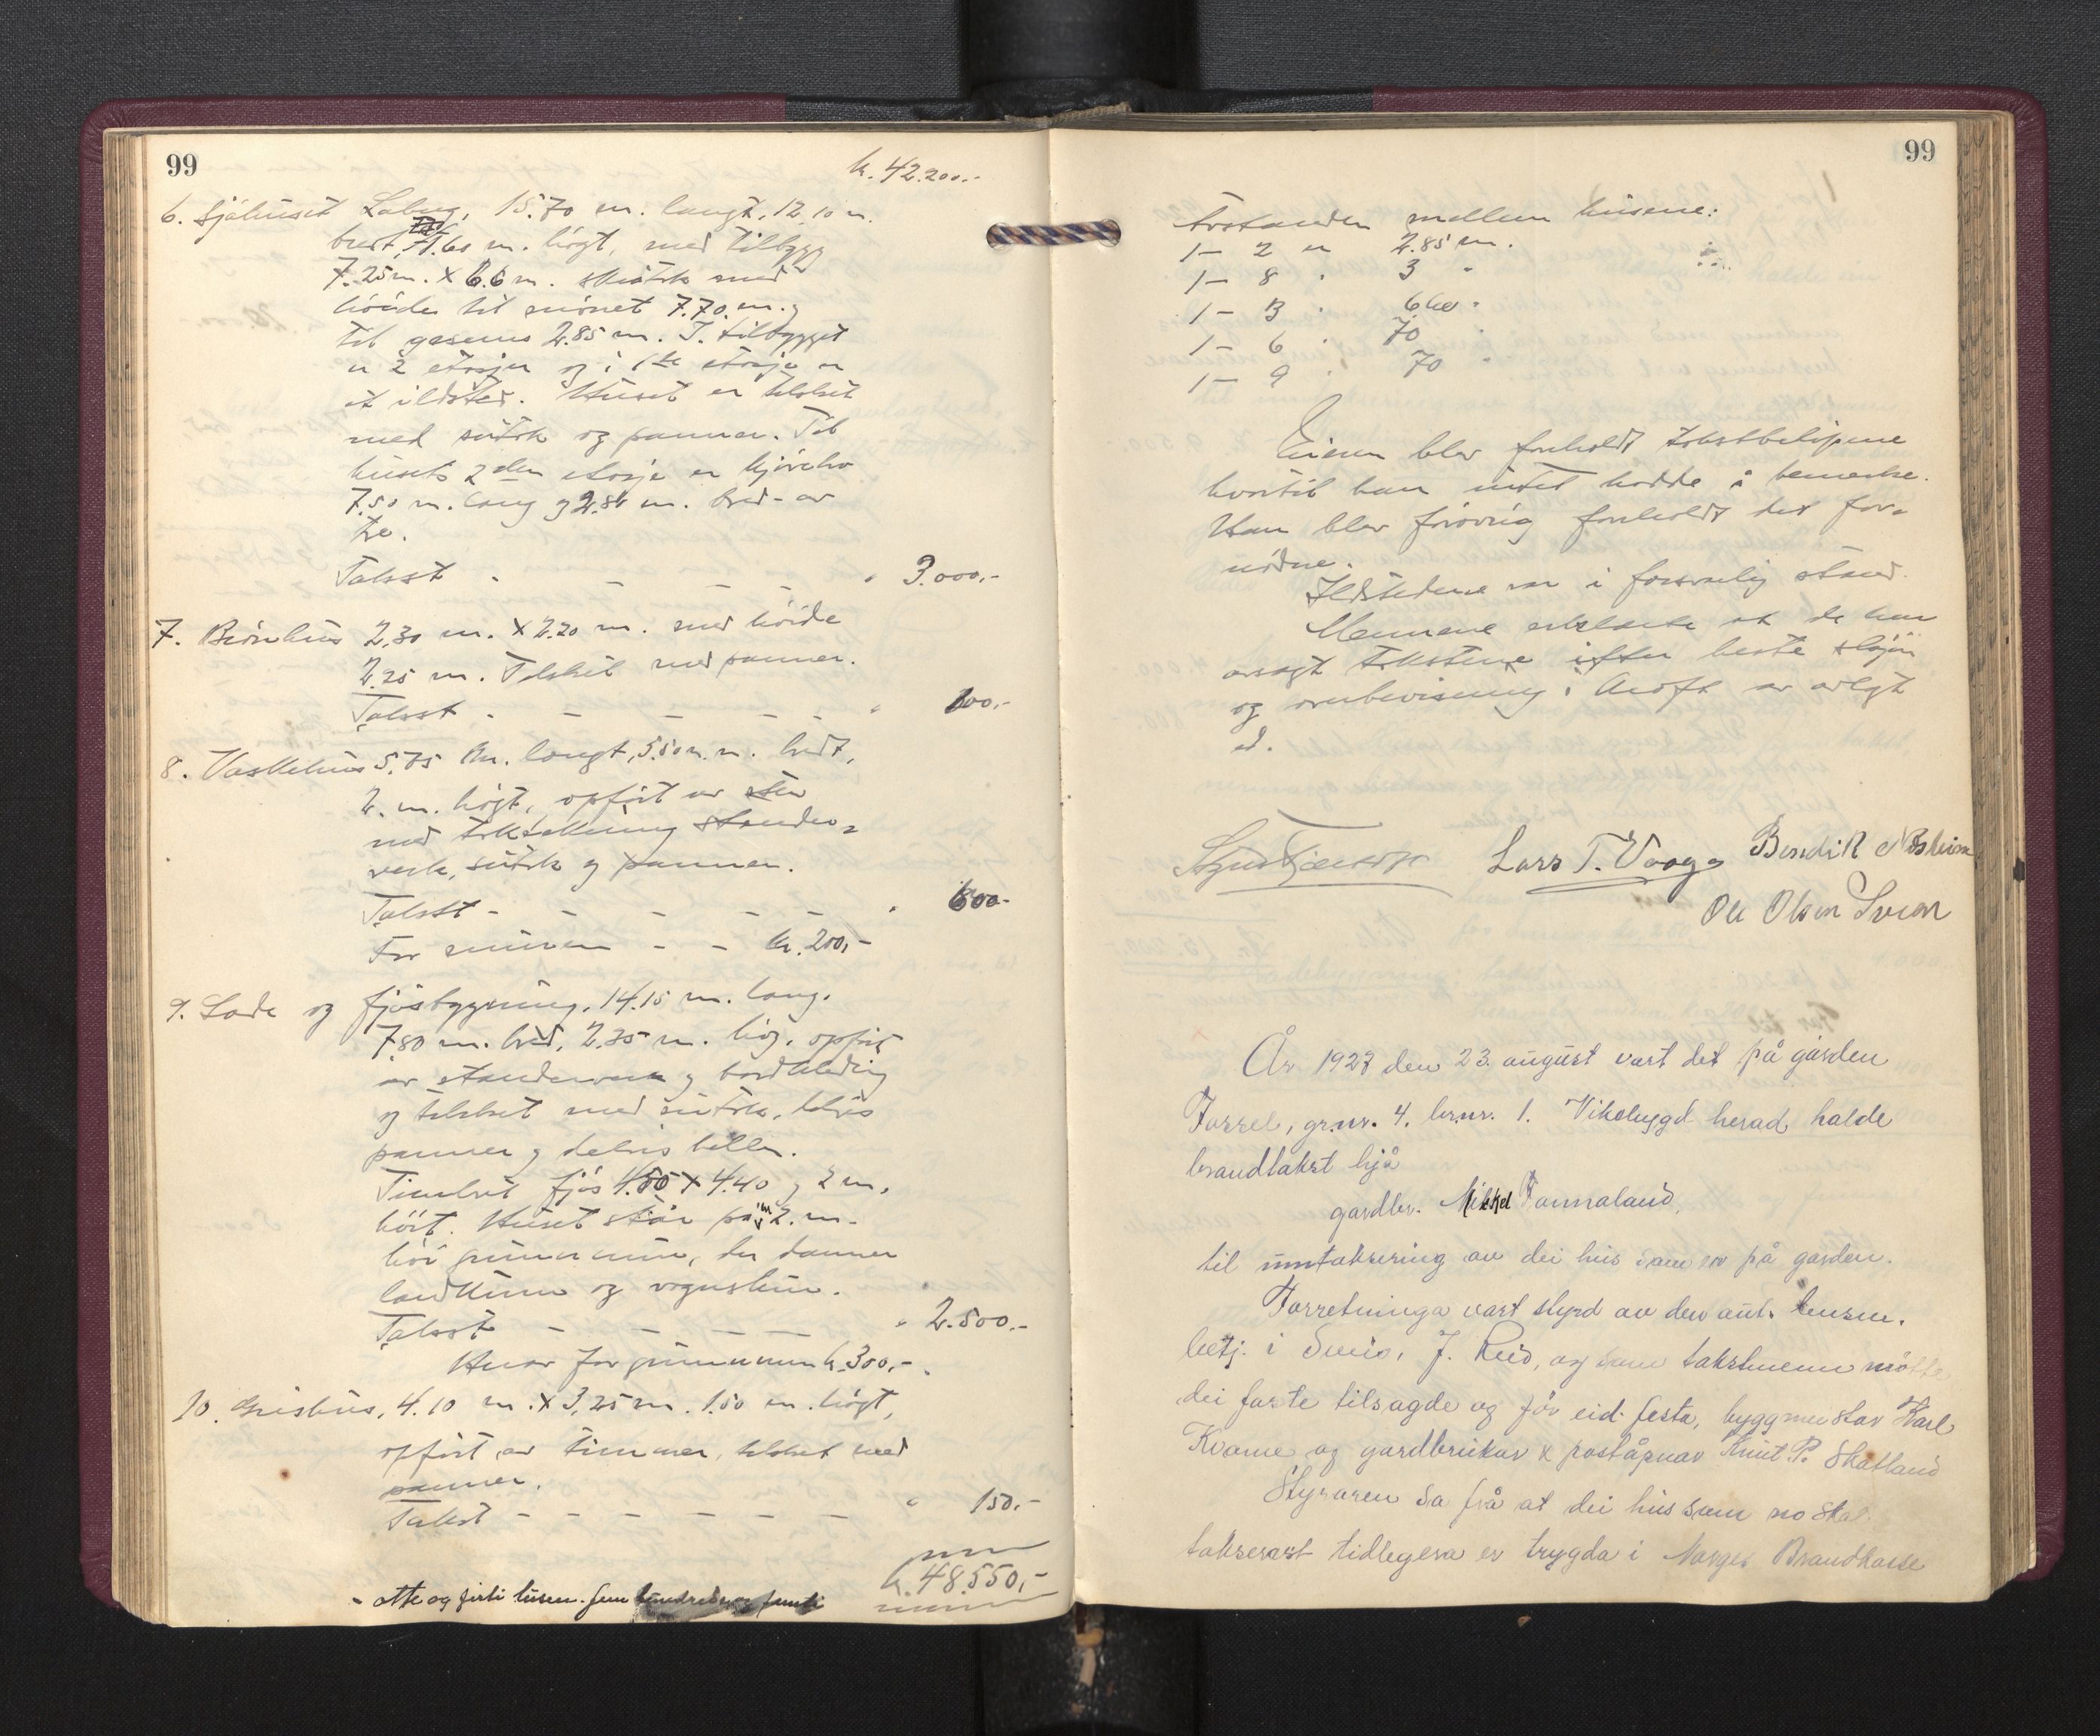 99
k. 42.200.-
6. Sjøhuset 15.70 m. langt, 12.10 m.
bredt, 4.60 m. høgt, med tilbygg
7.25 m. x 6.6 m. med
høide til mønet 7.70 m. og
til gesims 2.85 m. I tilbygget
er 2 etasjer og i 1ste etasje er
et ildsted. Huset er tekket
med sutak og panner. Til
husets 2den etasje er kjørebro
7.50 m. lang og 2.80 m. bred - av
tre.
Takst - - - - " 3.000,-
7. Brønhus 2,30 m. x 2.20 m. med høide
2.25 m. Tekket med panner.
Takst - - - - - " 100,-
8. Vaskehus 5.75 m. langt, 3.50 m. bredt,
2. m. høgt, opført av sten
med taktekning stender-
verk, sutak og panner.
Takst - - - - - " 600-
For muren - - kr. 200,-
9. Lade og fjøsbygning, 14.15 m. lang.
7.80 m. bred, 2.35 m. høg, opført
av stenderverk og bordklæding
og tekket med sutak, delvis
panner og delvis heller.
Timbret fjøs 4.50 x 4.40 og 2 m.
høit. Huset står på 2. m.
høi grunnmur, der danner
landkum og vognskur.
Takst - - - - " 2.500.-
Herav for grunnmuren k. 300,-
10. Grishus, 4.10 m. x 3,25 m. 1.50 m. høgt,
opført av timmer, tekket med
panner.
Takst - - - - - - " 150.-
k. 48.550,-
- otte og firti tusen fem hundrede og femti
99
Avstanden mellem husene:
1 - 2 er 2.85 m.
1 - 8 " 3 "
1 - 3 "
1 - 6 " 70
1 - 9 " 70 "
Eieren blev foreholdt takstbeløpene
hvortil han intet hadde å bemerke.
Han blev forøvrig foreholdt det for-
nødne.
Ildstedene var i forsvarlig stand.
Mennene erklærte at de har
avsagt takstene efter beste skjøn
og overbevisning i kraft av avlagt
ed.
Lars T. Vaage Bendik Næsheim
Ole Olsen Svean
År 1927 den 23. august vart det på garden
grnr. 4. brnr. 1. Vikebygd herad halde
brandtakst hjå
gardbr. Mikkel Tannaland,
til umtaksering av dei hus som er på garden.
Forretninga vart styrd av den aut. lensm.
betj. i Sveio, J. Reid, og som takstmenn møtte
dei faste tilsagde og før eid. festa, byggmeistar Karl
Kvame og gardbrukar & poståpnar Knut P. Skatland
Styraren sa frå at dei hus som no skal
takserast tidlegera er trygda i Norges Brandkasse